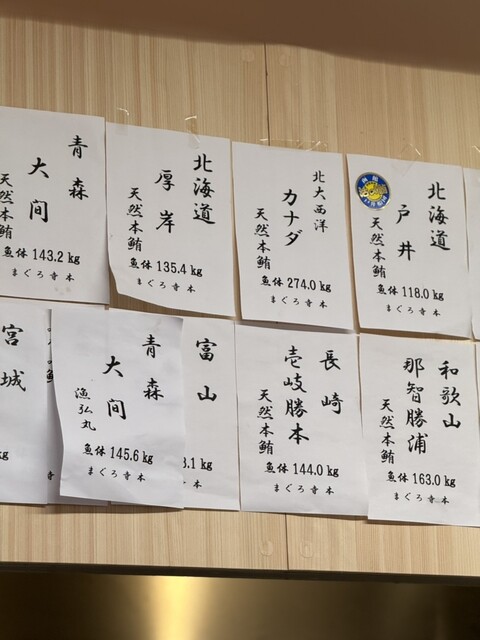 青森
大间
天然本鮪
魚体 143.2 kg
まぐろ寺本
北海道
厚岸
天然本鮪
魚体 135.4 kg
まぐろ寺本
北大西洋
カナダ
天然本鮪
魚体 274.0 kg
まぐろ寺本
北海道
戸井
天然本鮪
魚体 118.0 kg
まぐろ寺本
宮城
kg
青森
大间
漁弘丸
魚体 145.6 kg
まぐろ寺本
富山
3.1 kg
本
長崎
壱岐勝本
天然本鮪
魚体 144.0 kg
まぐろ寺本
和歌山
那智勝浦
天然本鮪
魚体 163.0 kg
まぐろ寺本